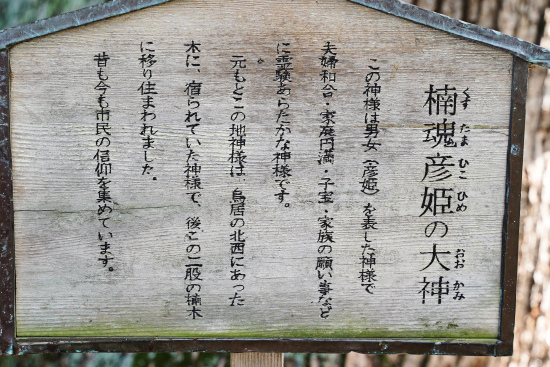 楠魂彦姫の大神
くす たま ひこ ひめ おお かみ
この神様は男女(彦姫)を表した神様で
夫婦和合・家庭円満・子宝・家族の願い事など
に霊験あらたかな神様です。
元もとこの地神様は、鳥居の北西にあった
木に、宿られていた神様で、後この二股の楠木
に移り住まわれました。
昔も今も市民の信仰を集めています。